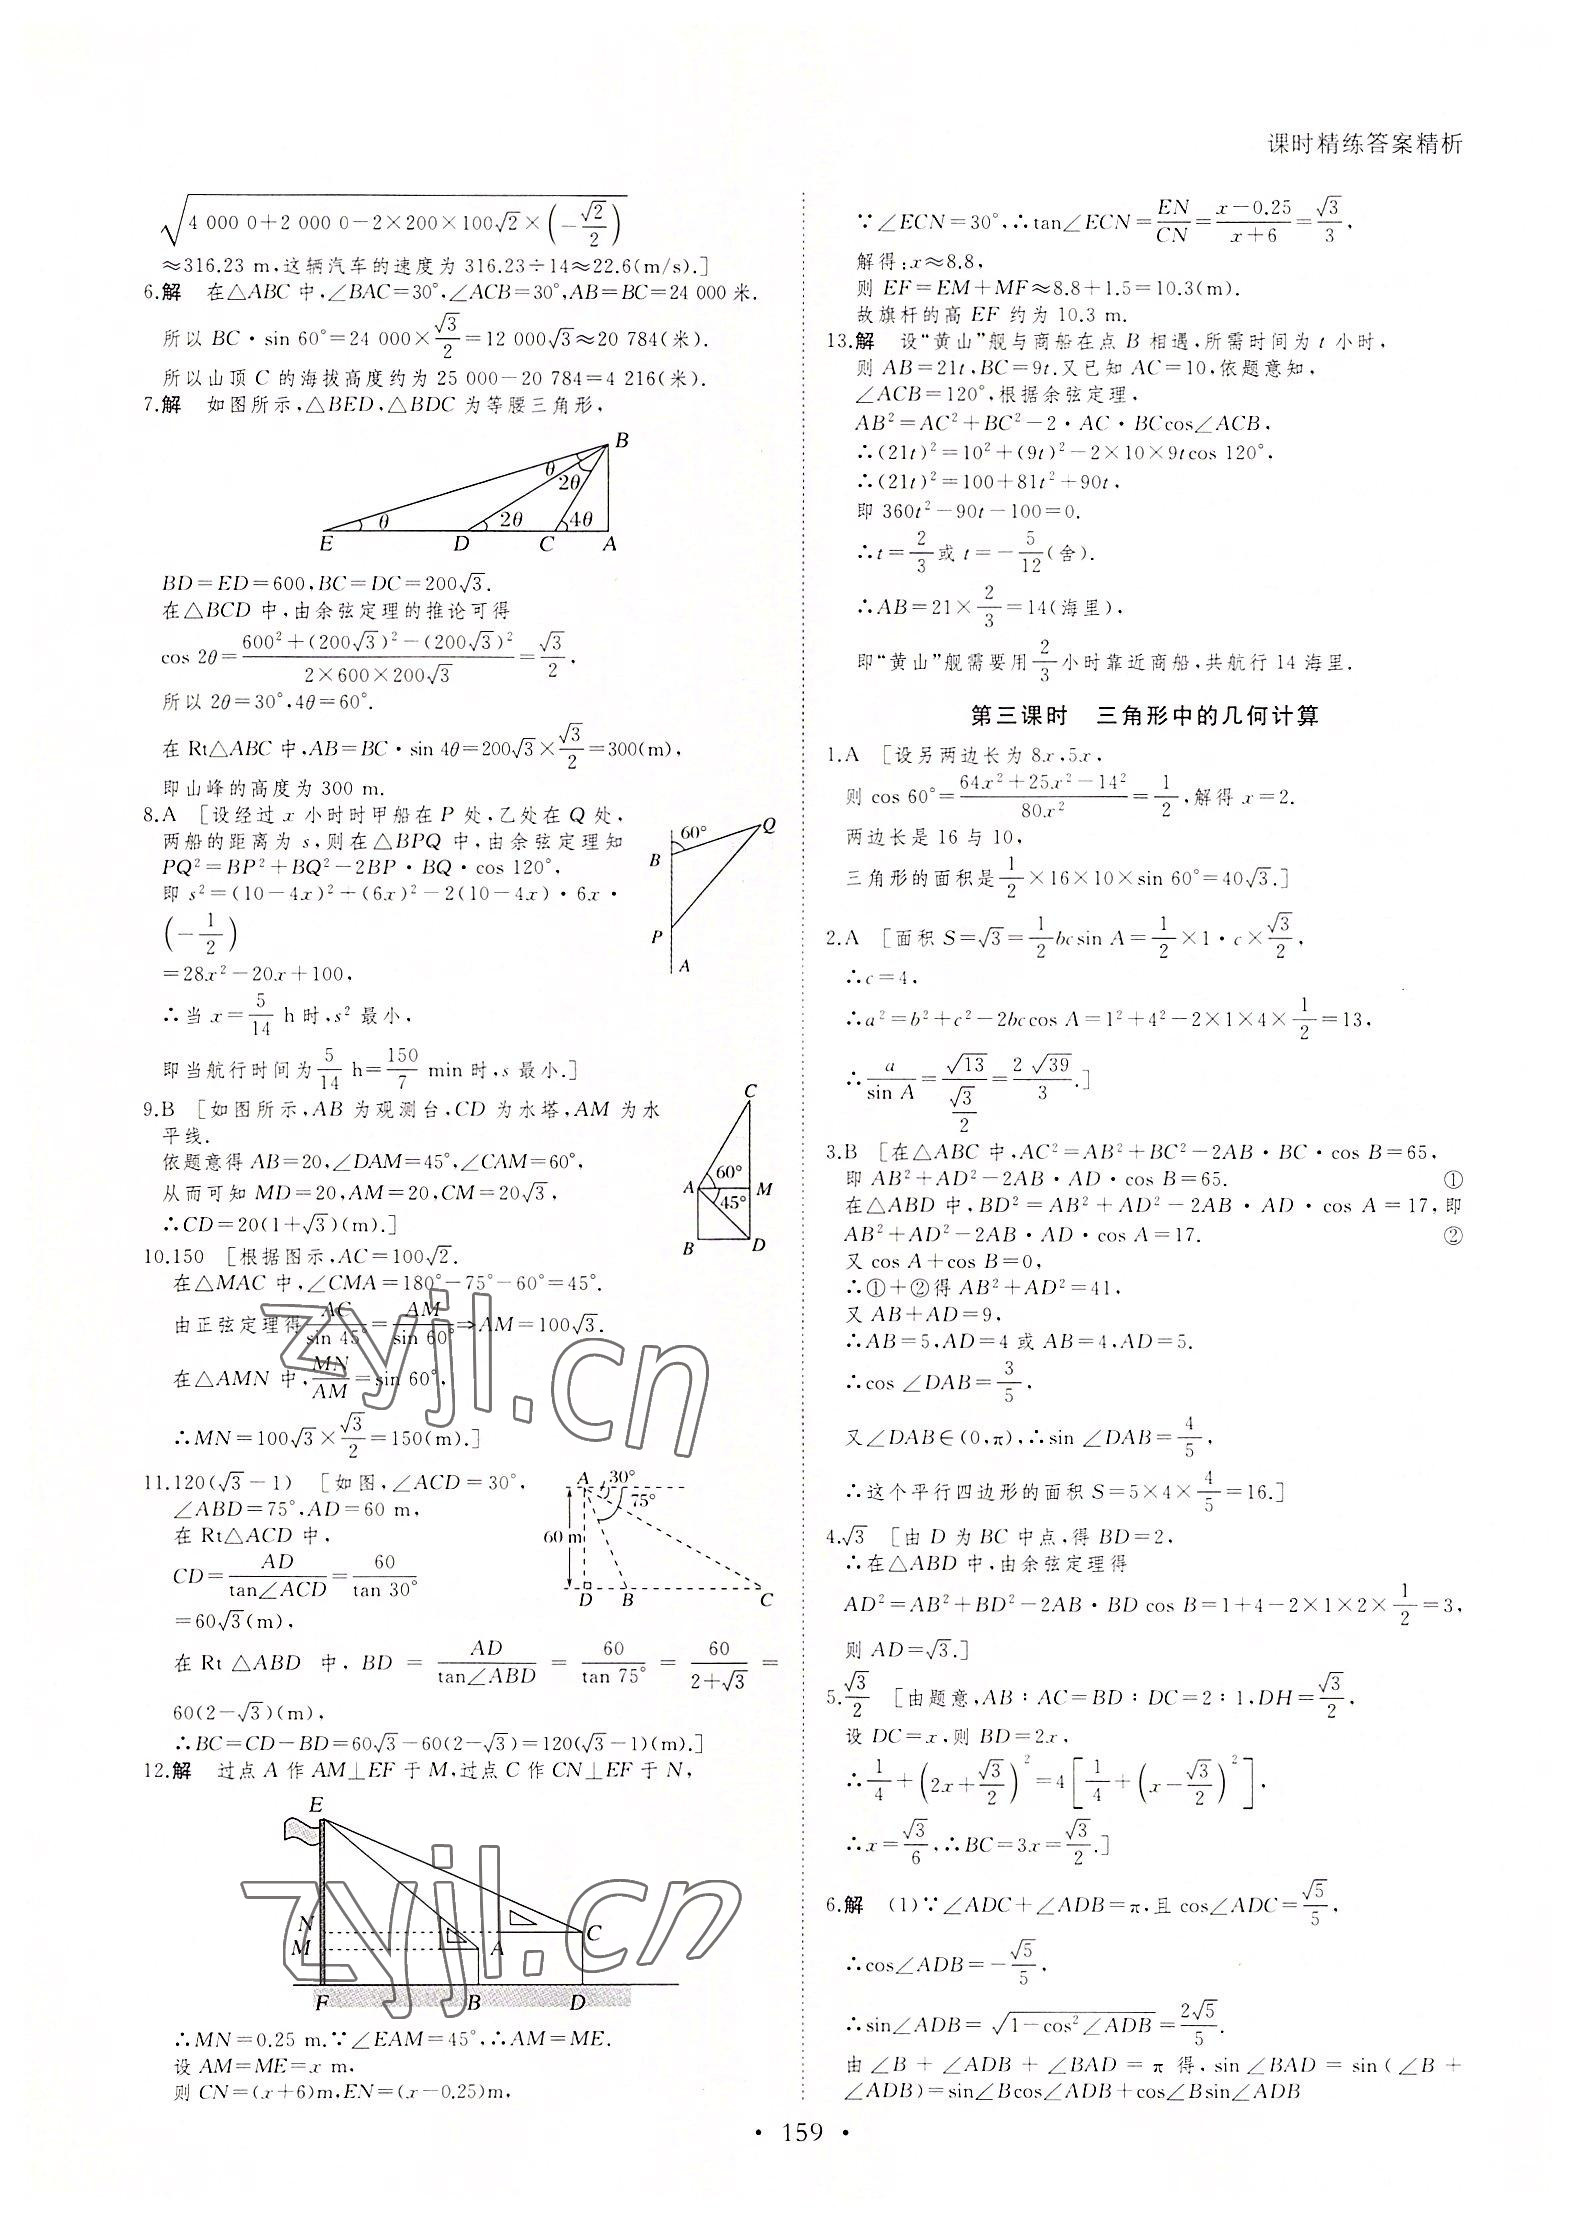 课时精练答案精析
√(4 000 0+2 000 0−2×200×100√2×(−√2/2))
≈316.23 m,这辆汽车的速度为 316.23÷14≈22.6(m/s).]
6.解 在△ABC 中,∠BAC=30°,∠ACB=30°,AB=BC=24 000 米.
所以 BC·sin 60°=24 000×√3/2=12 000√3≈20 784(米).
所以山顶 C 的海拔高度约为 25 000−20 784=4 216(米).
7.解 如图所示,△BED,△BDC 为等腰三角形,
B
θ
2θ
θ 2θ 4θ
E D C A
BD=ED=600,BC=DC=200√3.
在△BCD 中,由余弦定理的推论可得
cos 2θ=(600²+(200√3)²−(200√3)²)/(2×600×200√3)=√3/2,
所以 2θ=30°,4θ=60°.
在 Rt△ABC 中,AB=BC·sin 4θ=200√3×√3/2=300(m),
即山峰的高度为 300 m.
8.A [设经过 x 小时时甲船在 P 处,乙处在 Q 处,
两船的距离为 s,则在△BPQ 中,由余弦定理知
PQ²=BP²+BQ²−2BP·BQ·cos 120°,
即 s²=(10−4x)²+(6x)²−2(10−4x)·6x·
(−1/2)
=28x²−20x+100,
∴当 x=5/14 h 时,s² 最小,
即当航行时间为 5/14 h=150/7 min 时,s 最小.]
60° Q
B
P
A
9.B [如图所示,AB 为观测台,CD 为水塔,AM 为水
平线.
依题意得 AB=20,∠DAM=45°,∠CAM=60°,
从而可知 MD=20,AM=20,CM=20√3,
∴CD=20(1+√3)(m).]
C
60°
A M
45°
B D
10.150 [根据图示,AC=100√2.
在△MAC 中,∠CMA=180°−75°−60°=45°.
由正弦定理得 AC/sin 45°=AM/sin 60°⇒AM=100√3.
在△AMN 中,MN/AM=sin 60°,
∴MN=100√3×√3/2=150(m).]
11.120(√3−1) [如图,∠ACD=30°,
∠ABD=75°,AD=60 m,
在 Rt△ACD 中,
CD=AD/tan∠ACD=60/tan 30°
=60√3(m),
在 Rt △ABD 中,BD = AD/tan∠ABD = 60/tan 75° = 60/(2+√3) =
60(2−√3)(m),
∴BC=CD−BD=60√3−60(2−√3)=120(√3−1)(m).]
A 30°
75°
60 m
D B C
12.解 过点 A 作 AM⊥EF 于 M,过点 C 作 CN⊥EF 于 N,
E
N C
M A
F B D
∴MN=0.25 m.∵∠EAM=45°,∴AM=ME.
设 AM=ME=x m,
则 CN=(x+6)m,EN=(x−0.25)m,
∵∠ECN=30°,∴tan∠ECN=EN/CN=(x−0.25)/(x+6)=√3/3,
解得:x≈8.8,
则 EF=EM+MF≈8.8+1.5=10.3(m).
故旗杆的高 EF 约为 10.3 m.
13.解 设“黄山”舰与商船在点 B 相遇,所需时间为 t 小时,
则 AB=21t,BC=9t.又已知 AC=10,依题意知,
∠ACB=120°,根据余弦定理,
AB²=AC²+BC²−2·AC·BCcos∠ACB,
∴(21t)²=10²+(9t)²−2×10×9tcos 120°,
∴(21t)²=100+81t²+90t,
即 360t²−90t−100=0.
∴t=2/3或 t=−5/12(舍).
∴AB=21×2/3=14(海里),
即“黄山”舰需要用2/3小时靠近商船,共航行 14 海里.
第三课时 三角形中的几何计算
1.A [设另两边长为 8x,5x,
则 cos 60°=(64x²+25x²−14²)/80x²=1/2,解得 x=2.
两边长是 16 与 10,
三角形的面积是1/2×16×10×sin 60°=40√3.]
2.A [面积 S=√3=1/2bcsin A=1/2×1·c×√3/2,
∴c=4,
∴a²=b²+c²−2bccos A=1²+4²−2×1×4×1/2=13,
∴a/sin A=√13/(√3/2)=2√39/3.]
3.B [在△ABC 中,AC²=AB²+BC²−2AB·BC·cos B=65,
即 AB²+AD²−2AB·AD·cos B=65. ①
在△ABD 中,BD²=AB²+AD²−2AB·AD·cos A=17,即
AB²+AD²−2AB·AD·cos A=17. ②
又 cos A+cos B=0,
∴①+②得 AB²+AD²=41,
又 AB+AD=9,
∴AB=5,AD=4 或 AB=4,AD=5.
∴cos ∠DAB=3/5,
又∠DAB∈(0,π),∴sin ∠DAB=4/5,
∴这个平行四边形的面积 S=5×4×4/5=16.]
4.√3 [由 D 为 BC 中点,得 BD=2,
∴在△ABD 中,由余弦定理得
AD²=AB²+BD²−2AB·BD cos B=1+4−2×1×2×1/2=3,
则 AD=√3.]
5.√3/2 [由题意,AB∶AC=BD∶DC=2∶1,DH=√3/2,
设 DC=x,则 BD=2x,
∴1/4+(2x+√3/2)²=4[1/4+(x−√3/2)²],
∴x=√3/6,∴BC=3x=√3/2.]
6.解 (1)∵∠ADC+∠ADB=π,且 cos∠ADC=√5/5,
∴cos∠ADB=−√5/5,
∴sin∠ADB=√(1−cos²∠ADB)=2√5/5.
由 ∠B + ∠ADB + ∠BAD = π 得, sin ∠BAD = sin (∠B +
∠ADB)=sin∠Bcos∠ADB+cos∠Bsin∠ADB
zyjl.cn
zyjl.cn
· 159 ·